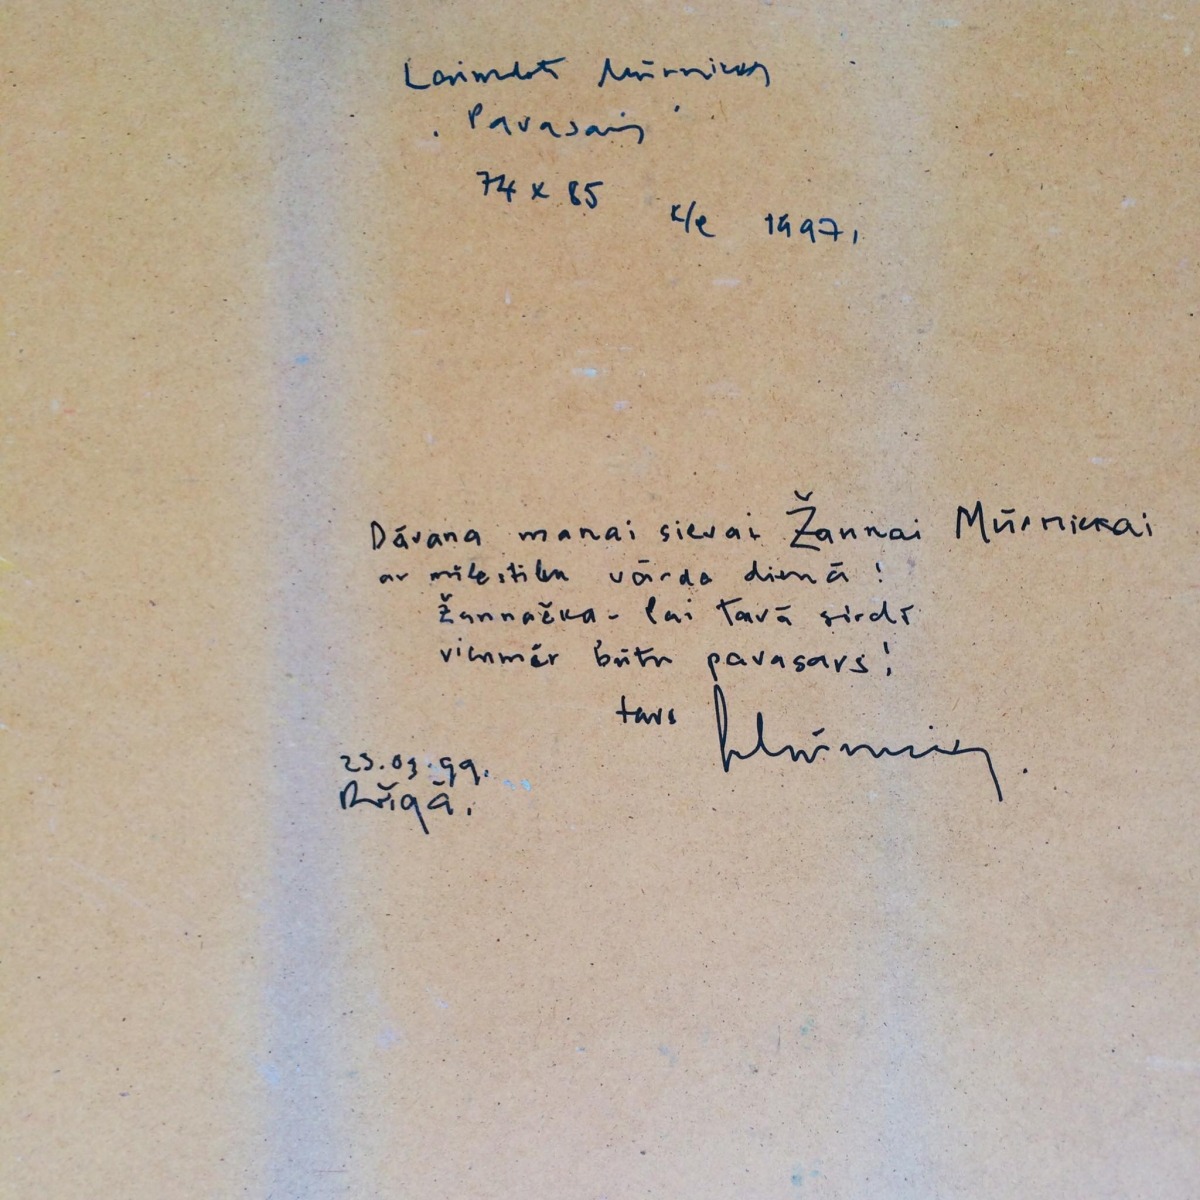 Laimdots Mūrnieks
"Pavasaris"
74 x 85 k/e 1997.
Dāvana manai sievai Žannai Mūrniekai
ar mīlestību vārda dienā!
Žannačka - lai tavā sirdī
vienmēr būtu pavasars!
tavs LMūrnieks.
23.03.99.
Rīgā.